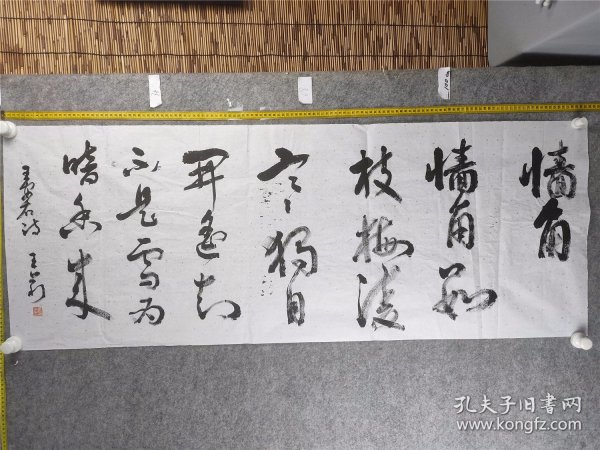 墙角
墙角数
枝梅凌
寒独自
开遥知
不是雪为
暗香来
王安石诗
王
孔夫子旧书网
www.kongfz.com